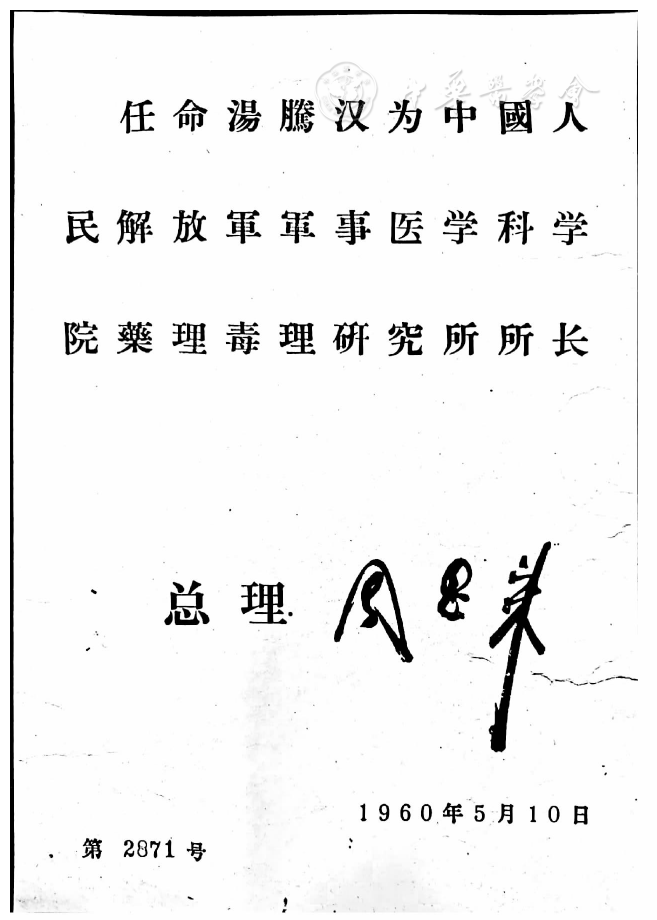 中华医学会
任命湯騰汉为中國人
民解放軍軍事医学科学
院藥理毒理研究所所长
总理 周恩来
1960年5月10日
第 2871 号